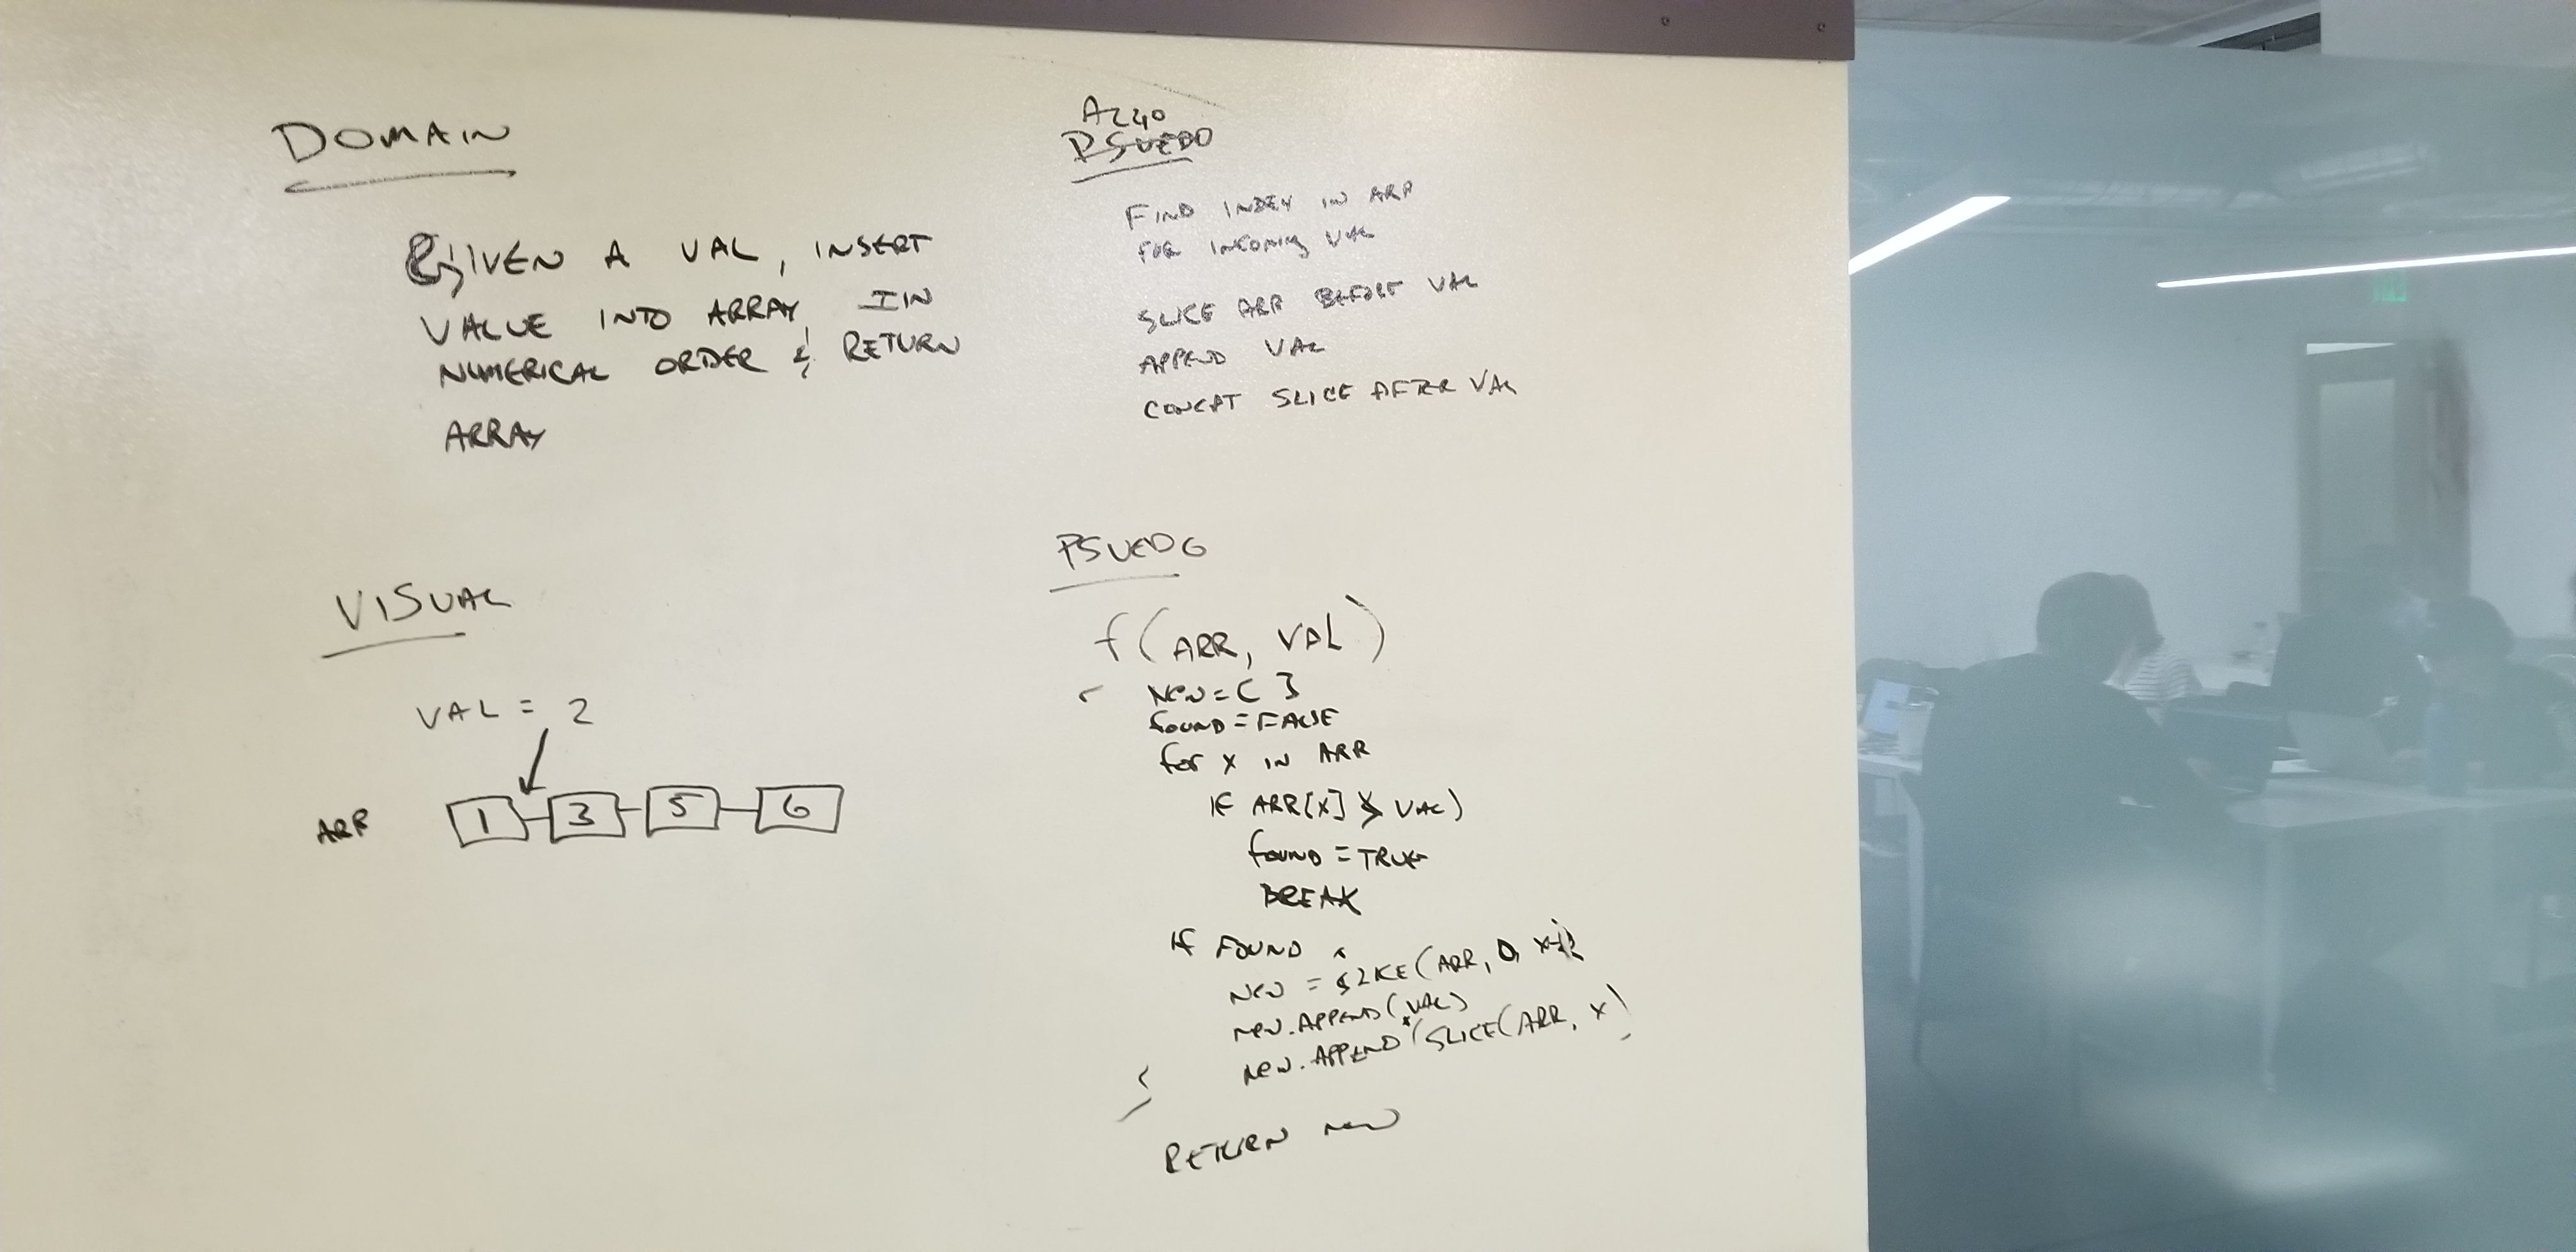 DOMAIN
GIVEN A VAL, INSERT
VALUE INTO ARRAY, IN
NUMERICAL ORDER & RETURN
ARRAY
VISUAL
VAL = 2
ARR 1 3 5 6
ALGO
PSUEDO
FIND INDEX IN ARR
FOR INCOMING VAL
SLICE ARR BEFORE VAL
APPEND VAL
CONCAT SLICE AFTER VAL
PSUEDO
f(ARR, VAL)
NEW = [ ]
FOUND = FALSE
for x IN ARR
IF ARR[X] > VAL)
FOUND = TRUE
BREAK
IF FOUND
NEW = SLICE(ARR, 0,
NEW.APPEND(VAL)
NEW.APPEND(SLICE(ARR, X)
RETURN NEW